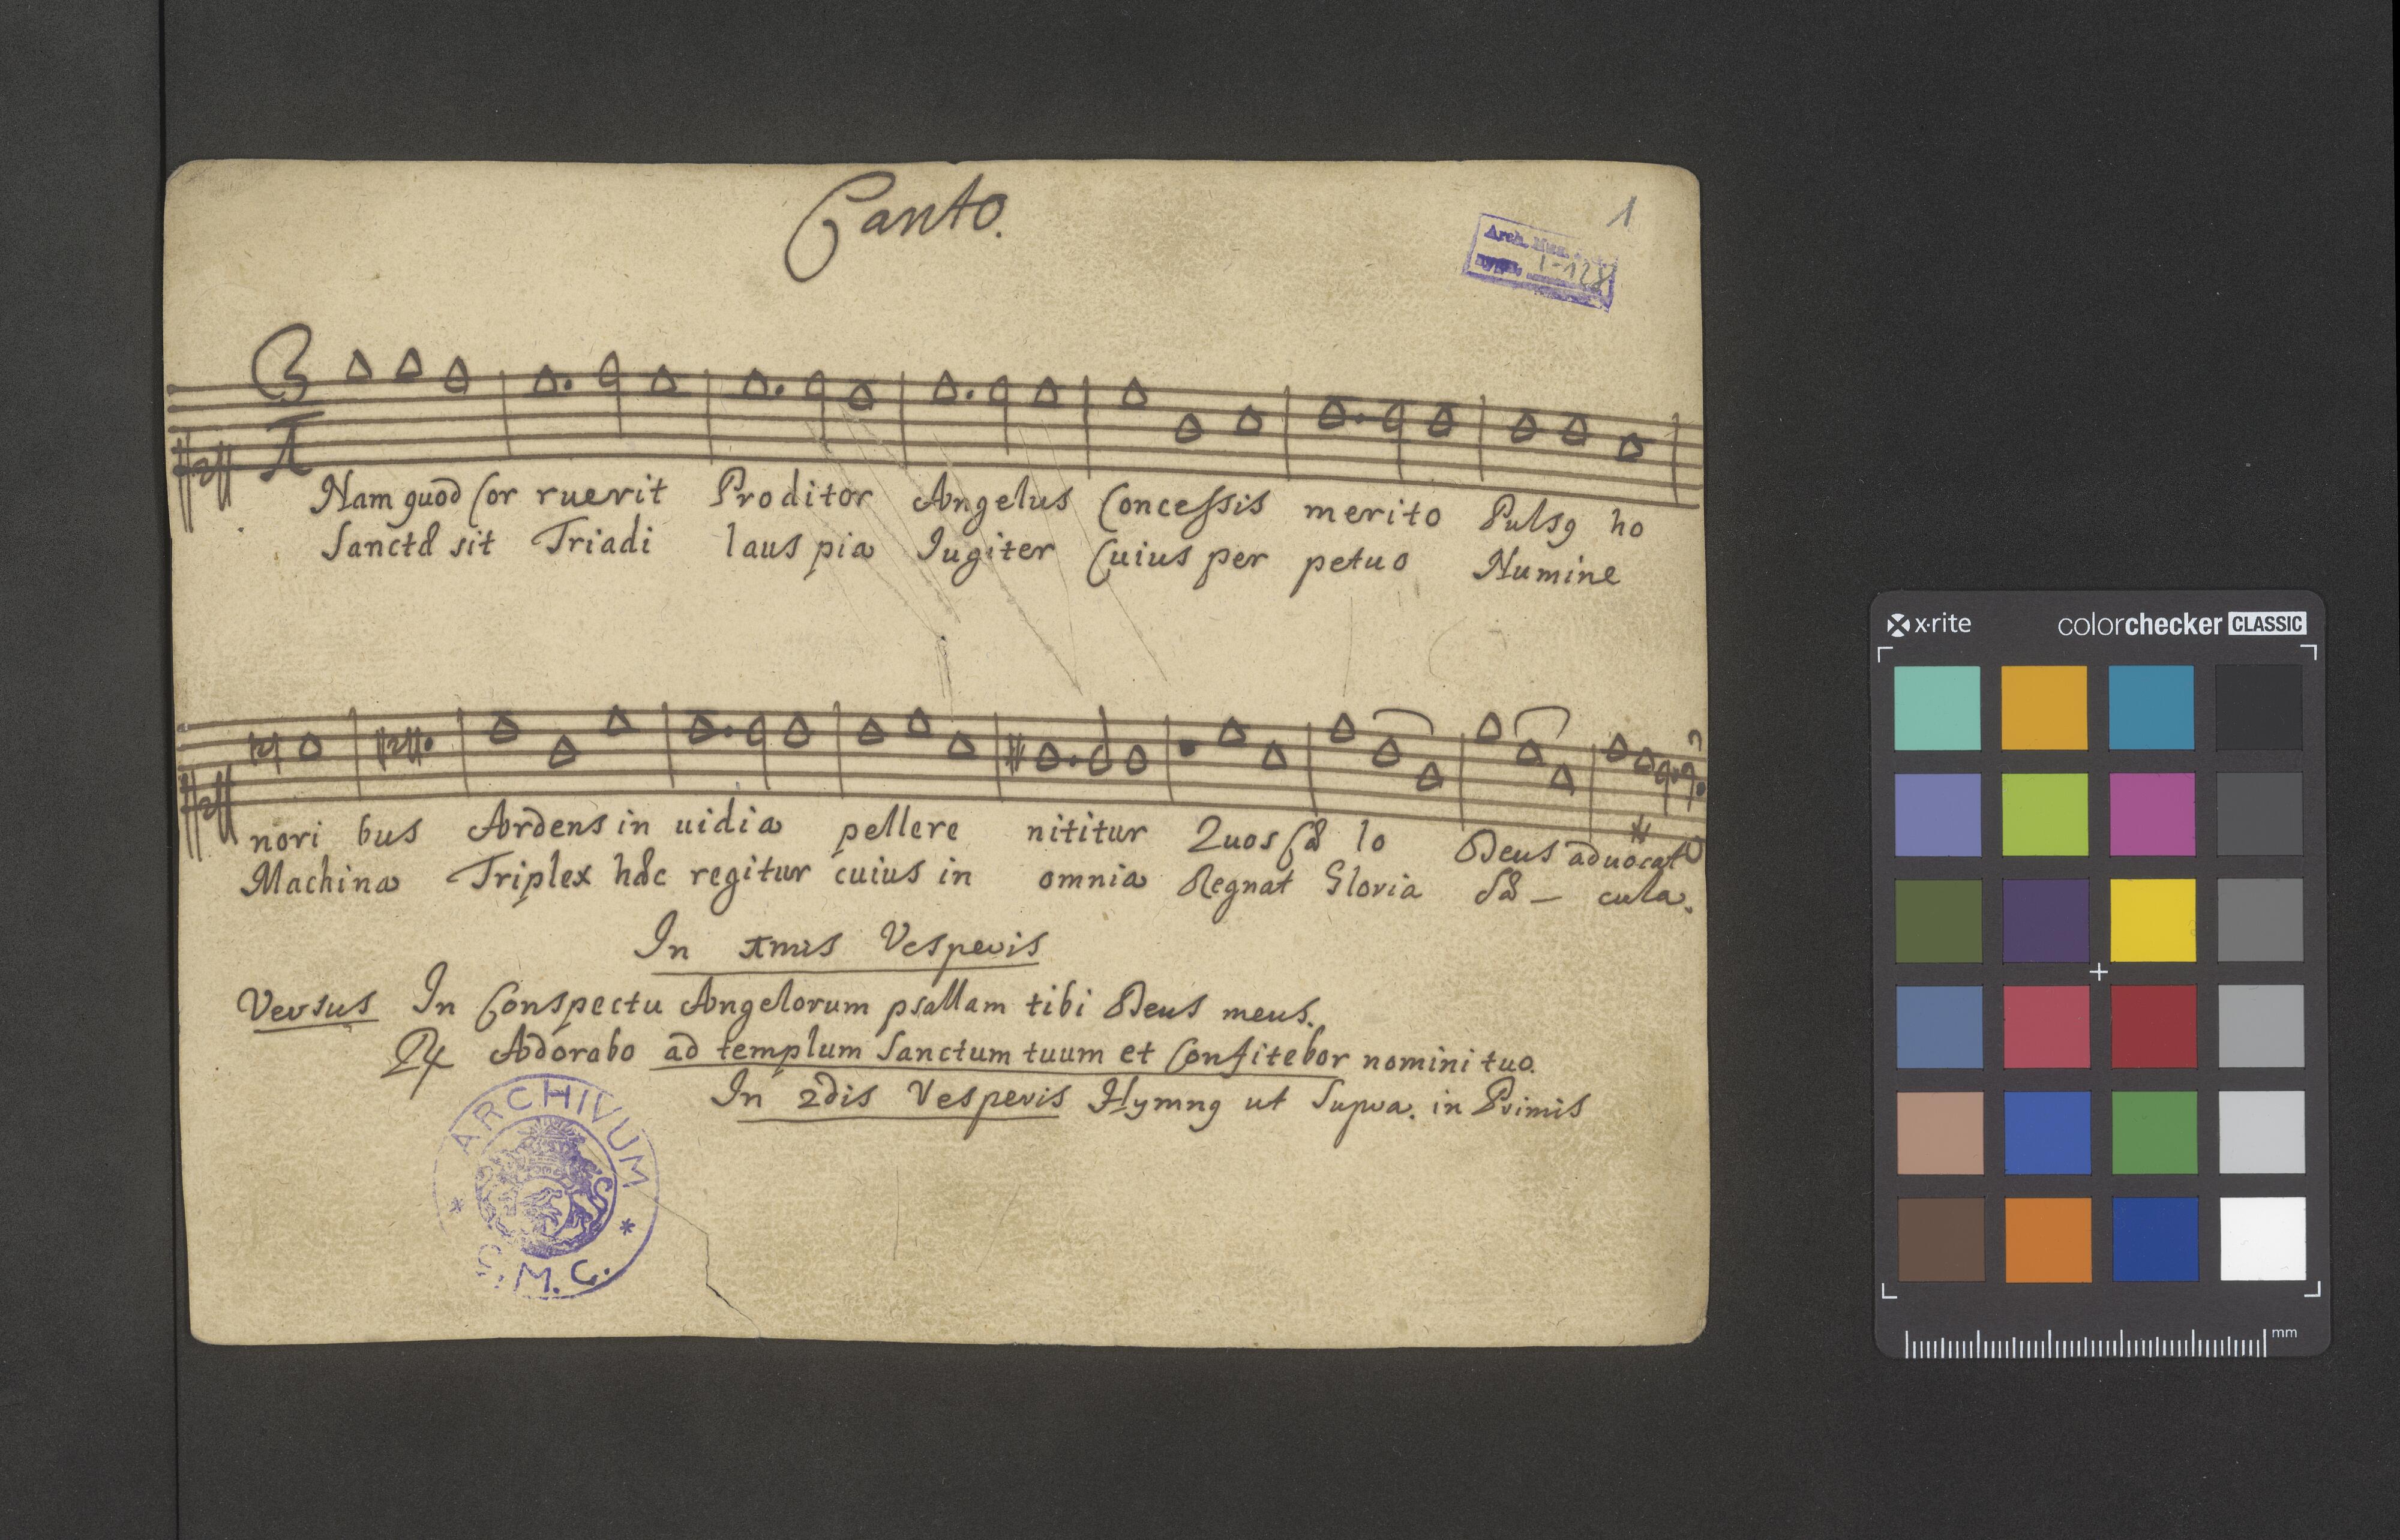 Canto.
1
Arch. Mus.
I-128
Nam quod Cor ruerit Proditor Angelus Concessis merito Pulsq ho
Sanctæ sit Triadi laus pia Iugiter Cuius per petuo Numine
nori bus Ardens in uidia pellere nititur Quos Cæ lo Deus aduocat
Machina Triplex hæc regitur cuius in omnia Regnat Gloria Sæ - cula.
In Vesperis
Versus In Conspectu Angelorum psallam tibi Deus meus.
Adorabo ad templum Sanctum tuum et Confitebor nomini tuo.
In 2dis Vesperis Hymnq ut Supra. in Primis
ARCHIVUM
* *
S.M.C.
x·rite colorchecker CLASSIC
mm